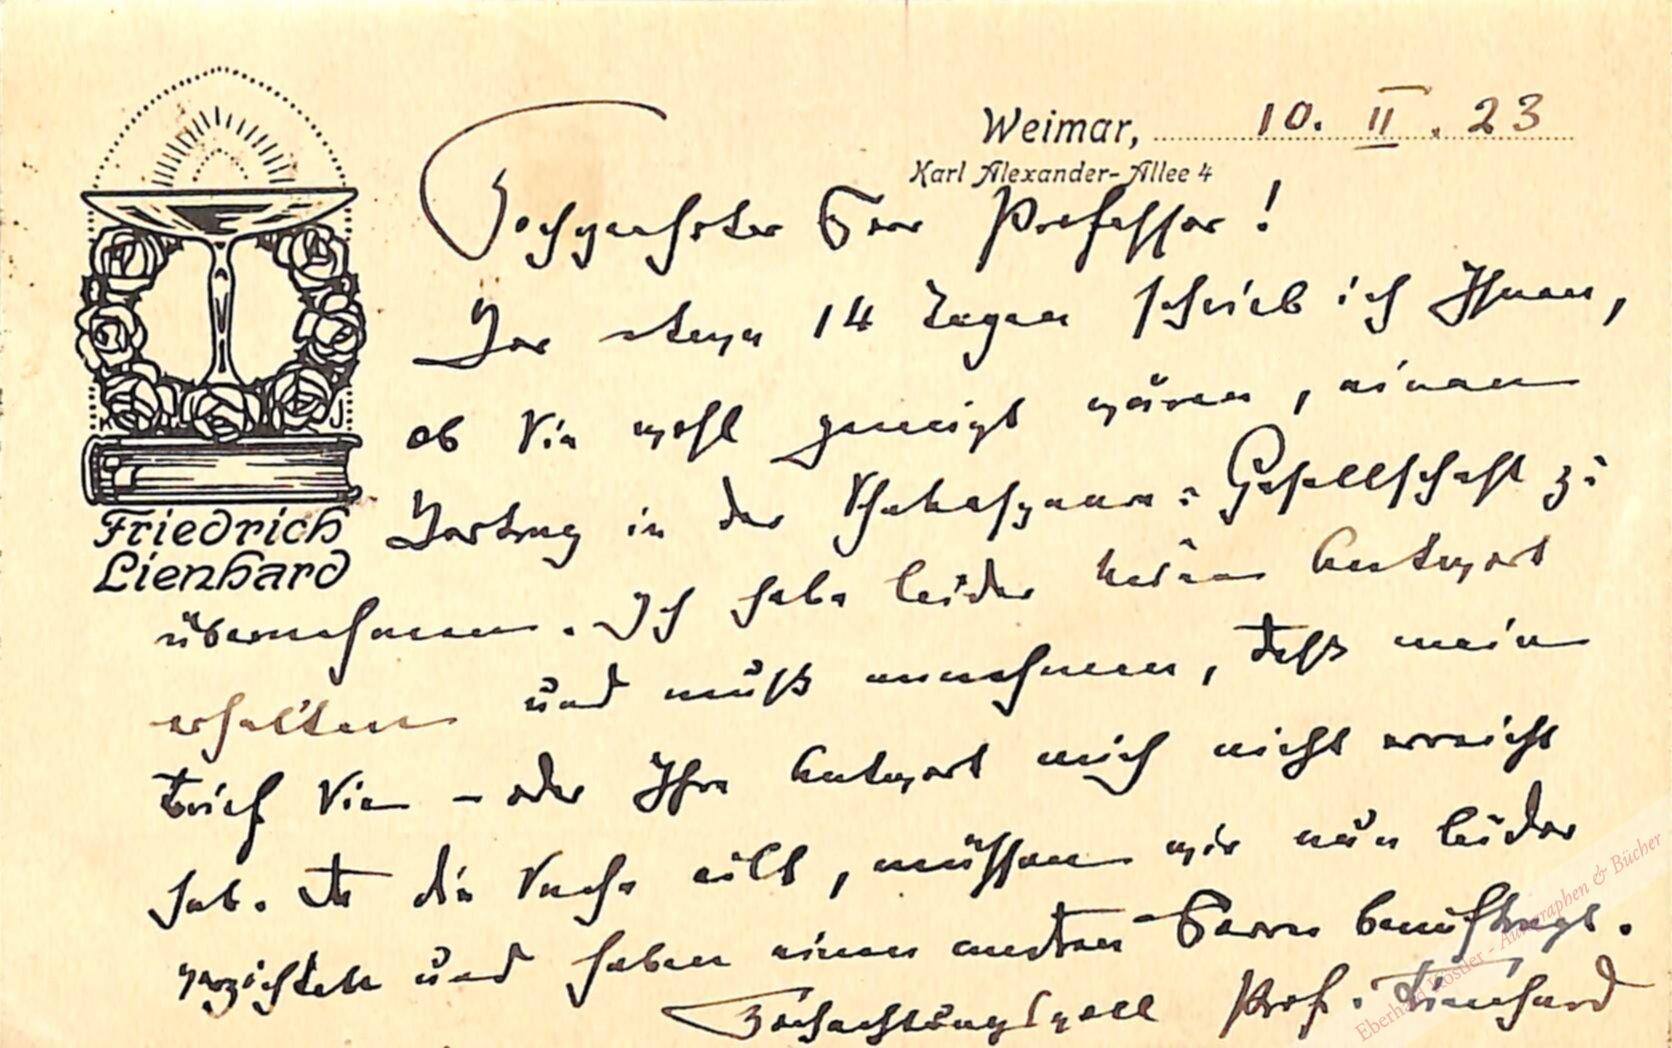 Weimar, 10. II. 23
Karl Alexander-Allee 4
Hochgeehrter Herr Professor!
Vor etwa 14 Tagen schrieb ich Ihnen,
ob Sie wohl geneigt wären, einen
Vortrag in der Shakespeare-Gesellschaft zu
übernehmen. Ich habe leider keine Antwort
erhalten und muß annehmen, daß mein
Brief Sie – oder Ihre Antwort mich nicht erreicht
hat. Da die Sache eilt, müssen wir nun leider
verzichten und haben einen andren Herrn beauftragt.
Hochachtungsvoll Prof. Lienhard
Friedrich
Lienhard
Eberhard Köstler - Autographen & Bücher